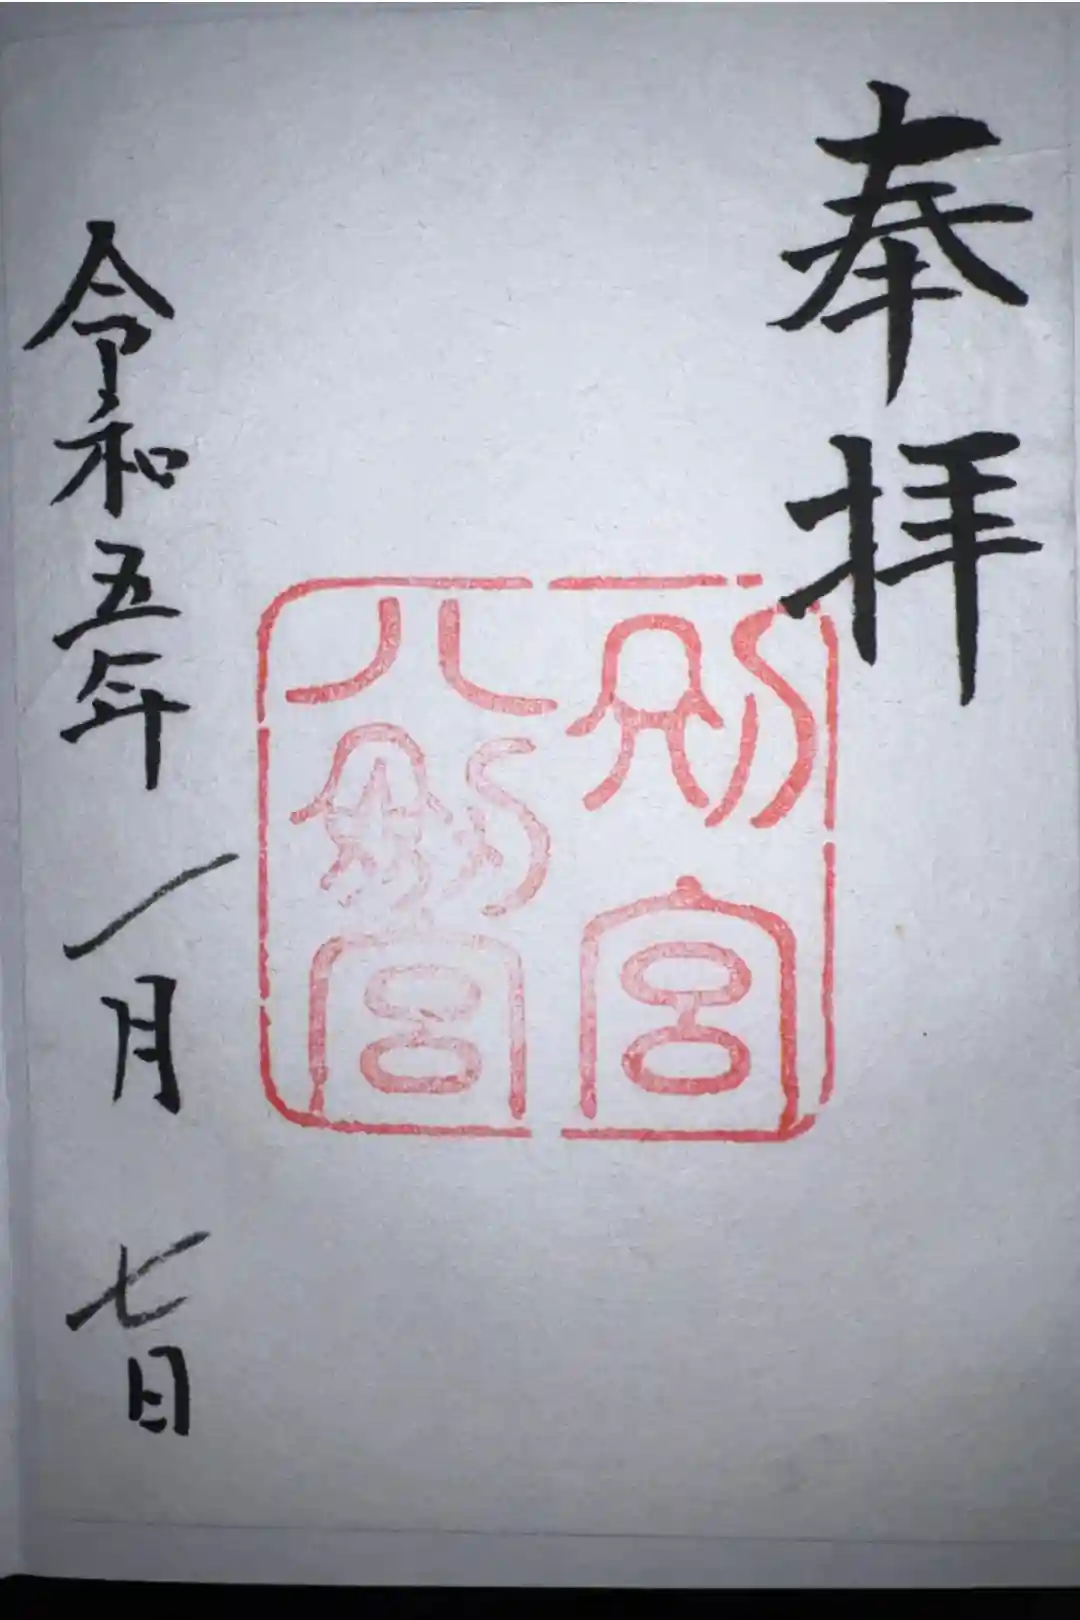 奉拝
別宮
八剣宮
令和五年一月七日